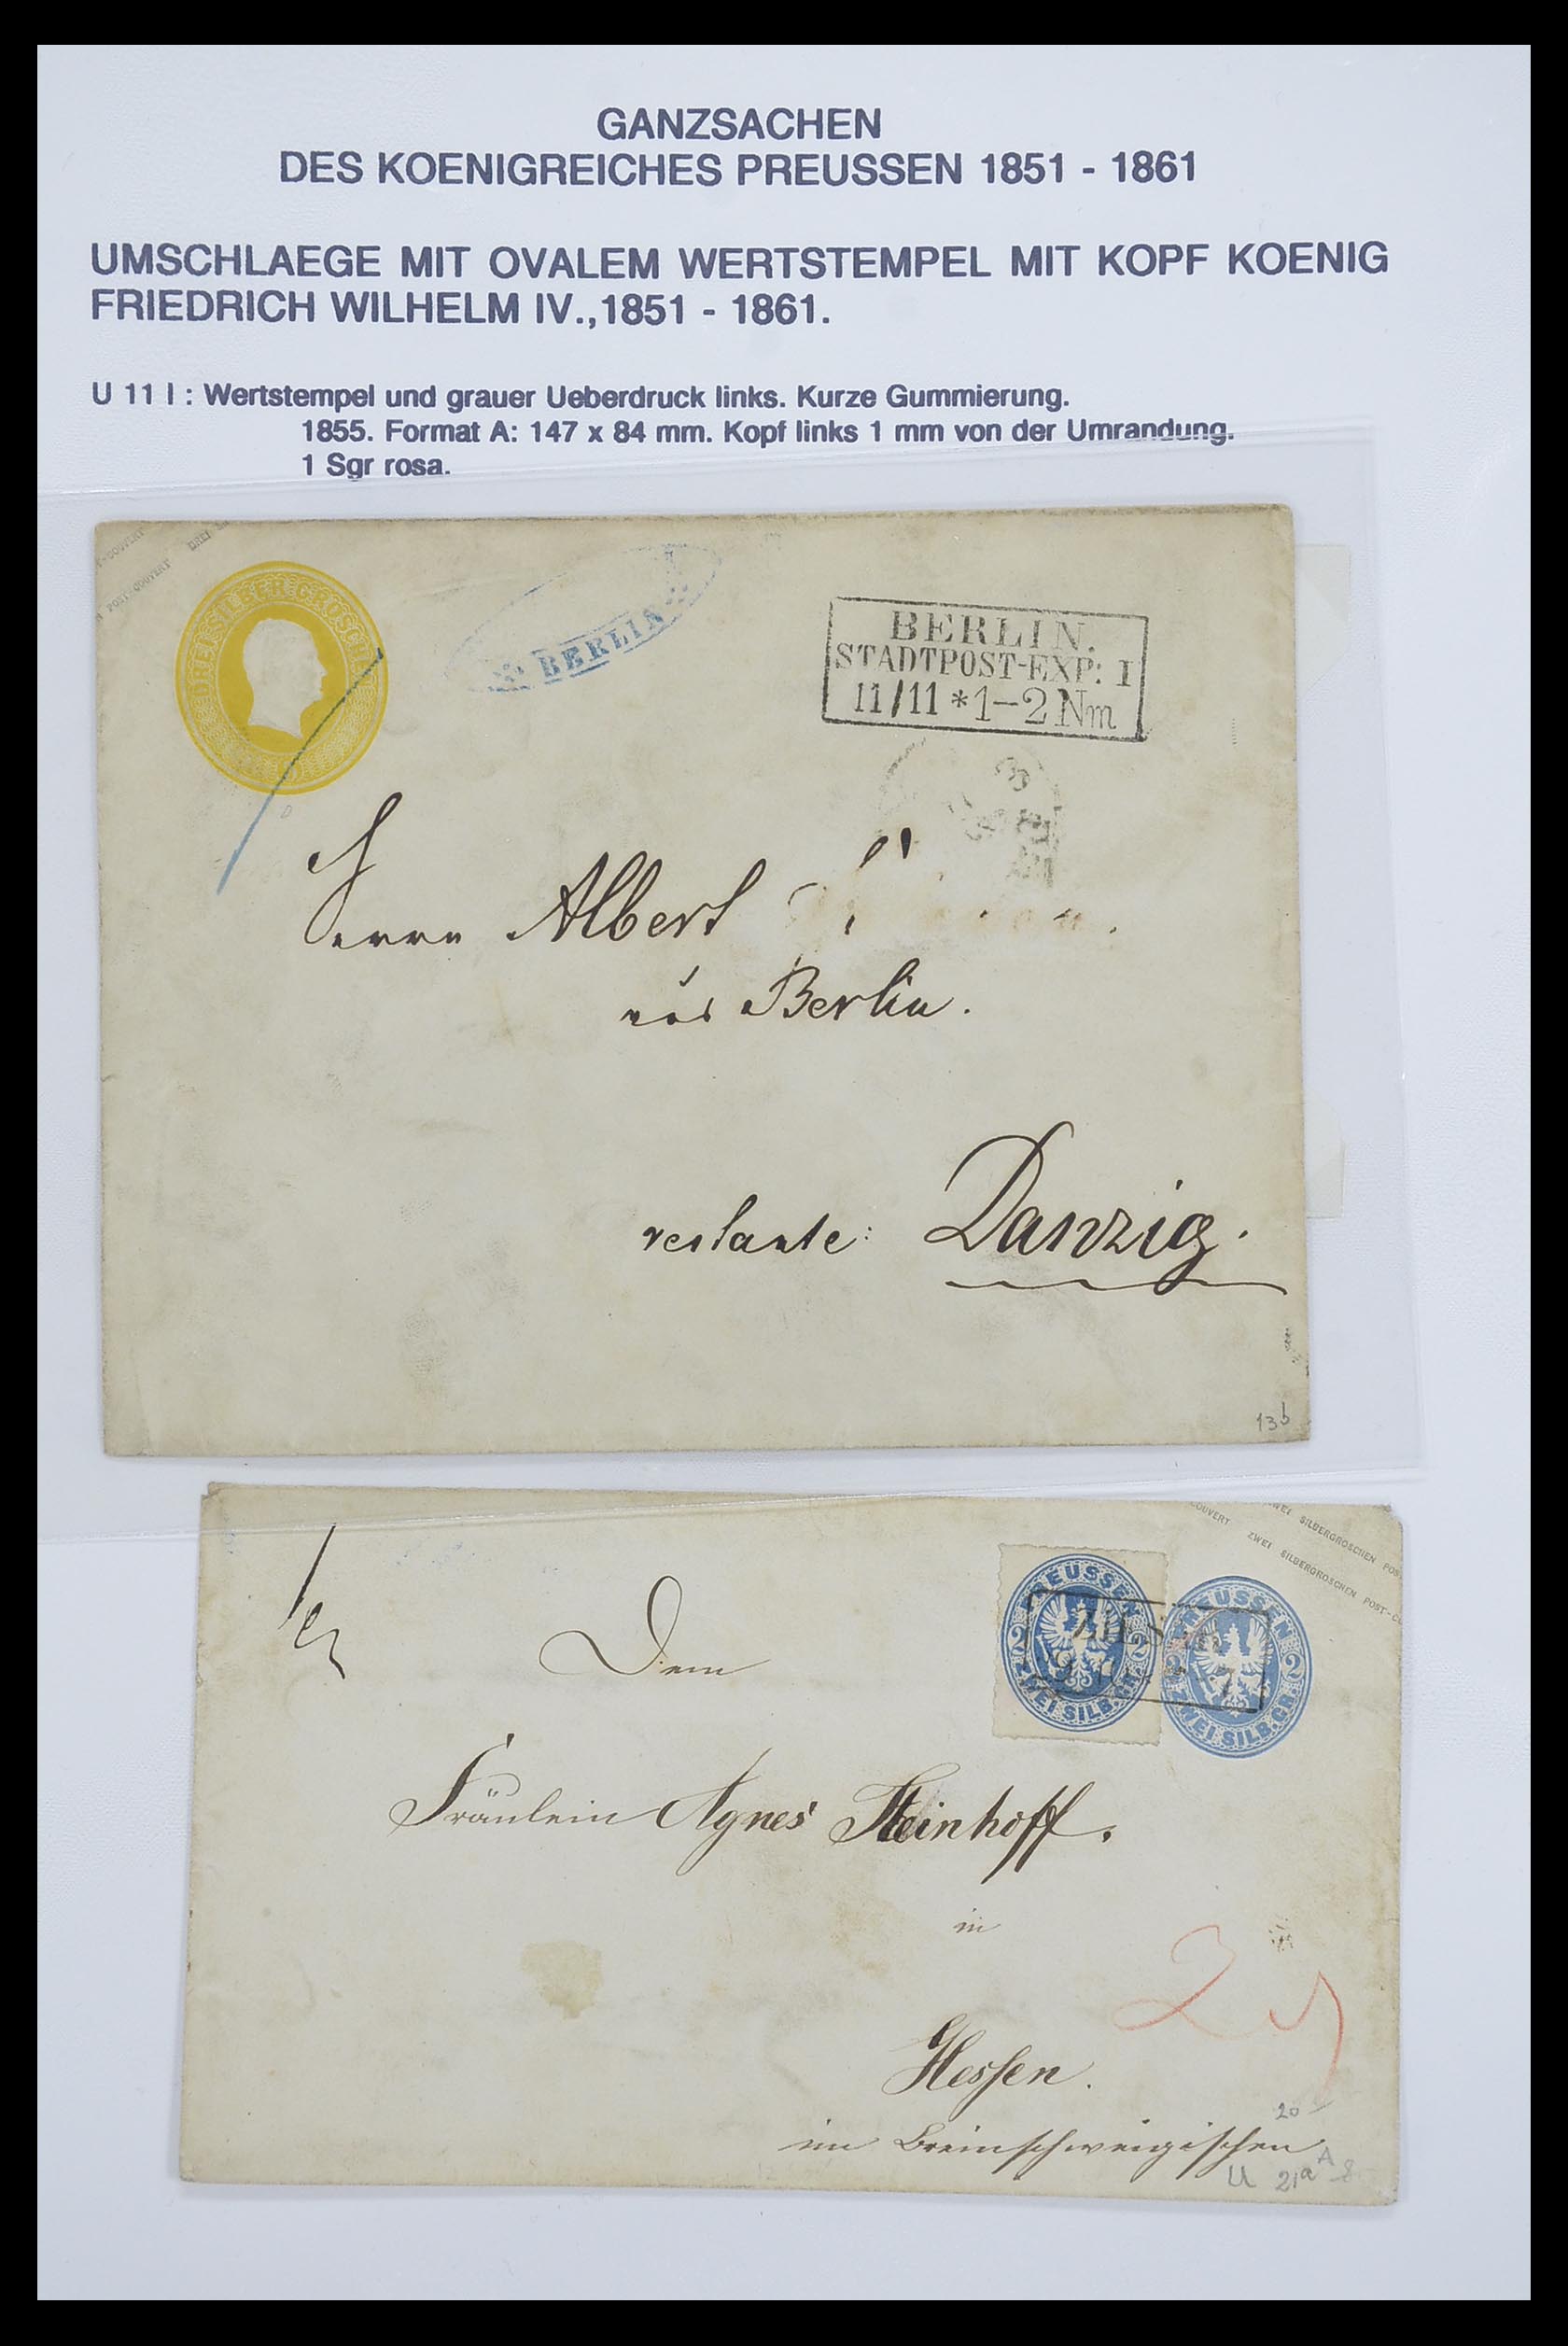 GANZSACHEN
DES KOENIGREICHES PREUSSEN 1851 - 1861
UMSCHLAEGE MIT OVALEM WERTSTEMPEL MIT KOPF KOENIG
FRIEDRICH WILHELM IV.,1851 - 1861.
U 11 I : Wertstempel und grauer Ueberdruck links. Kurze Gummierung.
1855. Format A: 147 x 84 mm. Kopf links 1 mm von der Umrandung.
1 Sgr rosa.
POST-COUVERT DREI
DREI SILBERGROSCHEN
BERLIN
BERLIN.
STADTPOST-EXP: I
11/11 * 1-2 Nm
Herrn Albert
aus Berlin.
restante: Danzig.
13b
COUVERT ZWEI SILBERGROSCHEN POST-C
ZWEI SILBERGROSCHEN POS
PREUSSEN
2 2
ZWEI SILB.GR.
PREUSSEN
2 2
ZWEI SILB.GR.
Dem
Fräulein Agnes Steinhoff.
in
2
Hessen.
im Braunschweigischen
20
U 21a A